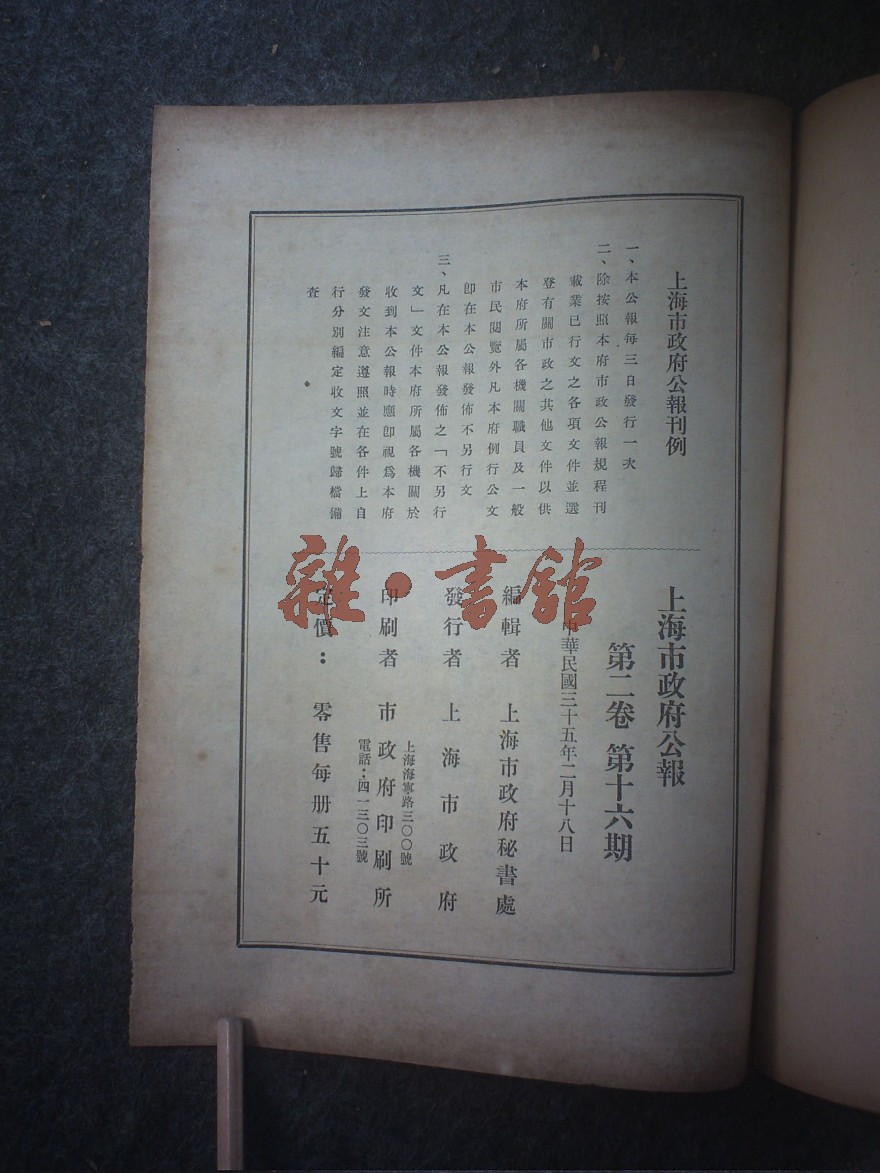 上海市政府公報刊例
一、本公報每三日發行一次
二、除按照本府市政公報規程刊
載業已行文之各項文件並選
登有關市政之其他文件以供
本府所屬各機關職員及一般
市民閱覽外凡本府例行公文
卽在本公報發佈不另行文
三、凡在本公報發佈之「不另行
文」文件本府所屬各機關於
收到本公報時應卽視爲本府
發文注意遵照並在各件上自
行分別編定收文字號歸檔備
查
上海市政府公報
第二卷 第十六期
中華民國三十五年二月十八日
編輯者 上海市政府秘書處
發行者 上海市政府
印刷者 市政府印刷所
上海海寧路三〇〇號
電話：四一三〇三號
定價：零售每册五十元
雜·書館